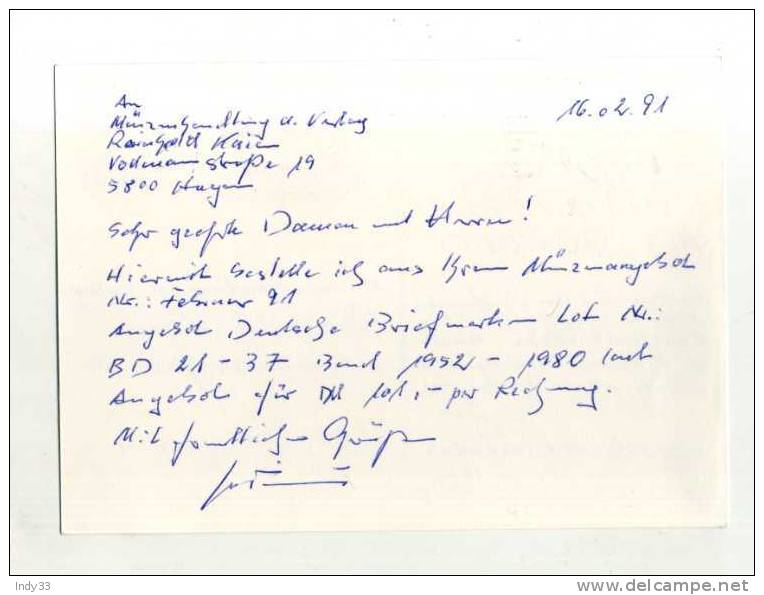 An
16.02.91
Münzenhandlung u. Verlag
Reinhold
straße 19
5800 Hagen
Sehr geehrte Damen und Herren!
Hiermit bestelle ich aus Ihrem Münzenangebot
Nr.: Februar 91
Angebot Deutsche Briefmarken Lot Nr.:
BD 21 - 37 Bund 1952 - 1980 laut
Angebot für DM 101,- per Rechnung.
Mit freundlichen Grüßen
Indy33
delcampe.net